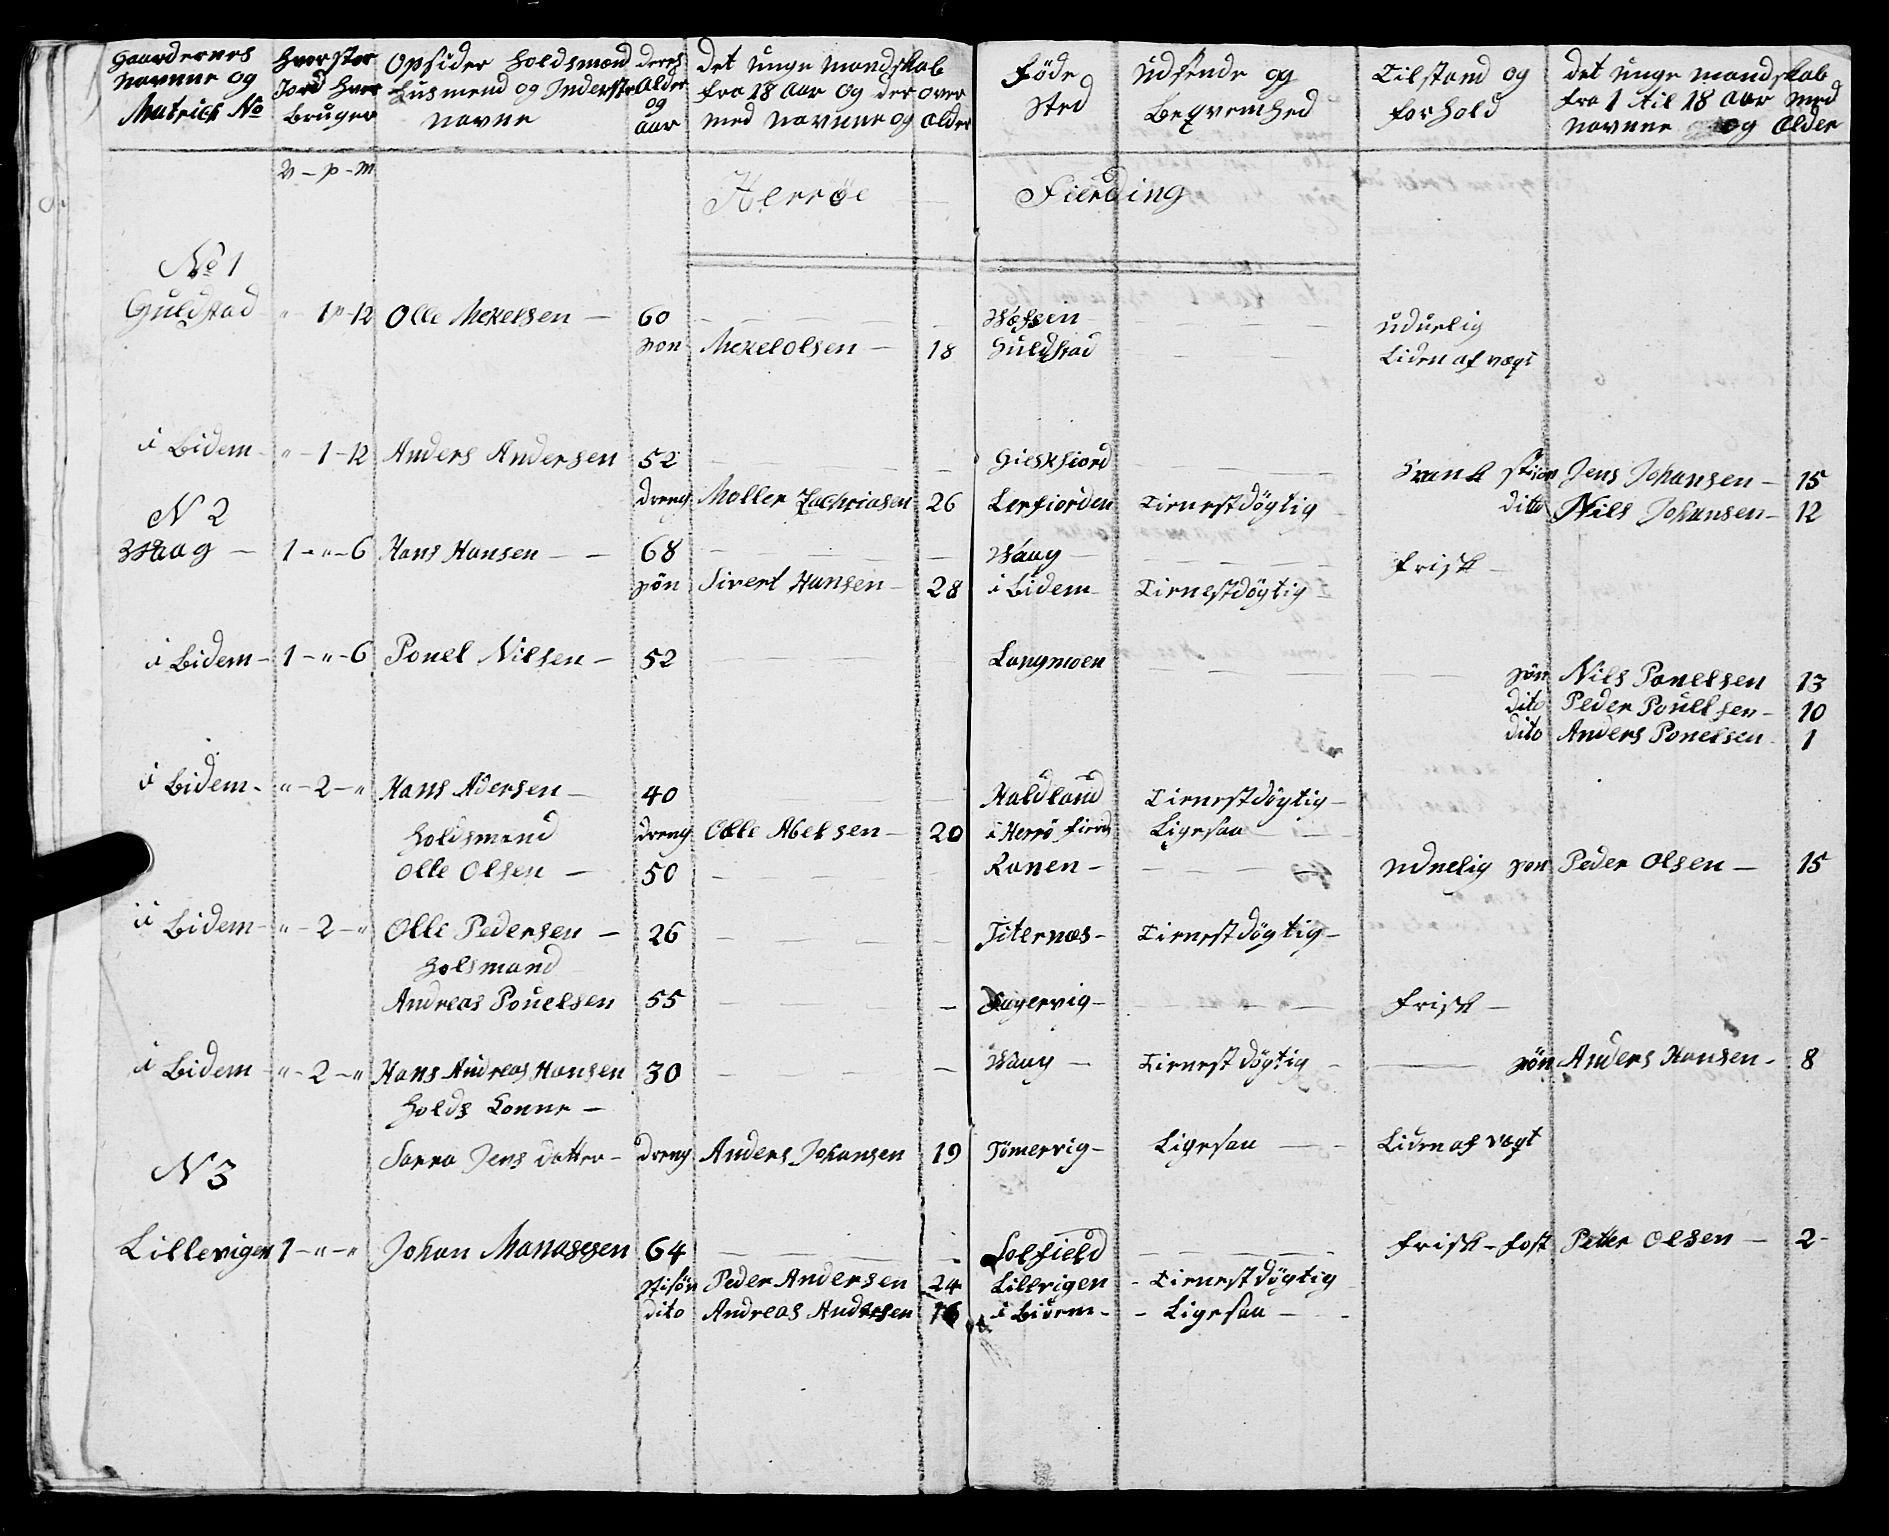 Gaardernes Navnne og Matrick No
Hvor stor Jord hver Bruger
Opsider Holdsmænd Husmend og Inderster Navne
deres Alder og aar
Det unge Mandskab fra 18 Aar og der over med Navnne og Alder
Føde Sted
Udseende og Beqvemhed
Tilstand og Forhold
Det unge Mandskab fra 1 til 18 aar med Navnne og Alder
V - p - m
Herrøe Fierding
No 1
Guldstad " - 1 - 12 Olle Mekelsen - 60 Wefsen uduelig
søn Mekel Olsen - 18 Guldstad Liden af vægt
i Bidem - " - 1 - 12 Anders Andersen 52 Gieskfiord Svank stisøn Jens Johansen - 15
dreng Moller Zachriasen 26 Lerfiorden Tienestdøgtig ditto Nils Johansen - 12
N 2
Waag - 1 - " - 6 Hans Hansen - 68 Waag Frisk
søn Sivert Hansen - 28 i Bidem Tienestdøgtig
i Bidem - 1 - " - 6 Pouel Nilsen - 52 Langmoen
søn Nils Pouelsen 13
dito Peder Pouelsen - 10
dito Anders Pouelsen 1
i Bidem - " - 2 - " Hans Adersen - 40 Haldland Tienestdøgtig -
Holdsmand dreng Olle Abelsen - 20 i Herrø fierd Ligesaa
Olle Olsen - 50 Ranen - uduelig søn Peder Olsen - 15
i Bidem - " - 2 - " Olle Pedersen - 26 Titernæs - Tienestdøgtig -
Holsmand
Andreas Pouelsen 55 Fagervig - Frisk -
i Bidem " - 2 - " Hans Andreas Hansen 30 Waag - Tienestdøgtig søn Anders Hansen - 8
Holds Konne -
Sarra Jens datter - dreng Anders Johansen 19 Tømervig - Ligesaa Liden af vægt
N 3
Lillevigen 1 - " - " Johan Manassesen 64 Solfield Frisk - Fost Petter Olsen - 2 -
Stisøn Peder Andersen 24 Lillvigen - Tienestdøgtig
dito Andreas Andersen 16 i Bidem - - Ligesaa -